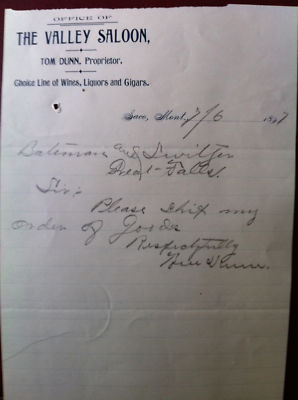 OFFICE OF
THE VALLEY SALOON,
TOM DUNN, Proprietor.
Choice Line of Wines, Liquors and Cigars.
Saco, Mont, 7/6 1897
Bateman and Switzer
Great Falls.
Sir:
Please ship my
order of Goods
Respectfully
Dunn.